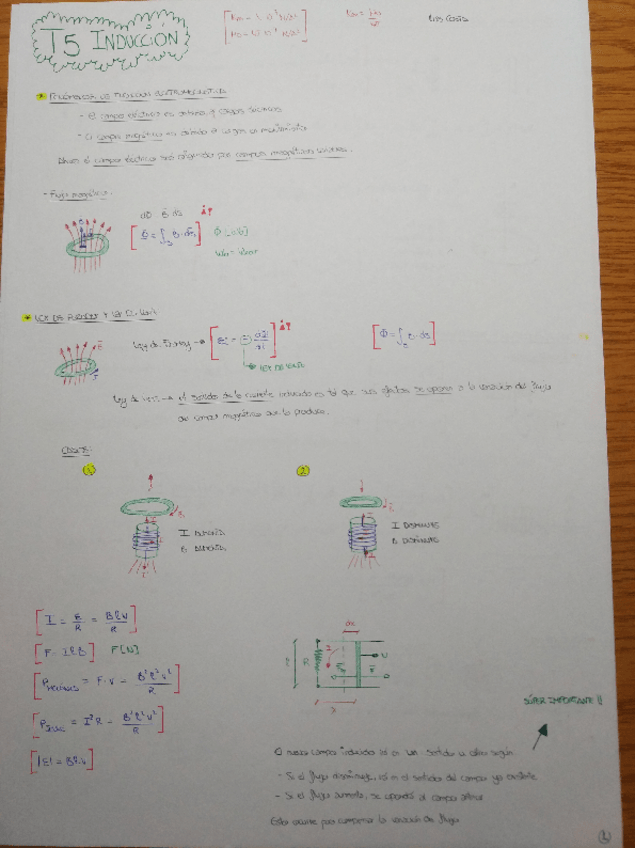 T5 INDUCCIÓN
* FENÓMENOS DE INDUCCIÓN ELECTROMAGNÉTICA
- El campo eléctrico es debido a cargas eléctricas
- El campo magnético es debido a cargas en movimiento
Ahora el campo eléctrico será originado por campos magnéticos variables.
- Flujo magnético.
dΦ = B·ds
[Φ = ∫s B·ds]
* LEY DE FARADAY Y LEY DE LENZ
Ley de Faraday → [ε = - dΦ/dt]
[Φ = ∫s B·ds]
→ LEY DE LENZ
Ley de Lenz → el sentido de la corriente inducida es tal que sus efectos se oponen a la variación del flujo
del campo magnético que la produce.
CASOS:
1 2
I AUMENTA
B AUMENTA
I DISMINUYE
B DISMINUYE
[I = ε/R = BℓV/R]
[F = IℓB] F[N]
= F·V = B²ℓ²V²/R]
= I²R = B²ℓ²V²/R]
[|ε| = BℓV]
Δx
R
I
SÚPER IMPORTANTE !!
El nuevo campo inducido irá en un sentido u otro según
- Si el flujo disminuye, irá en el sentido del campo ya existente
- Si el flujo aumenta, se opondrá al campo
Esto ocurre para compensar la variación de flujo